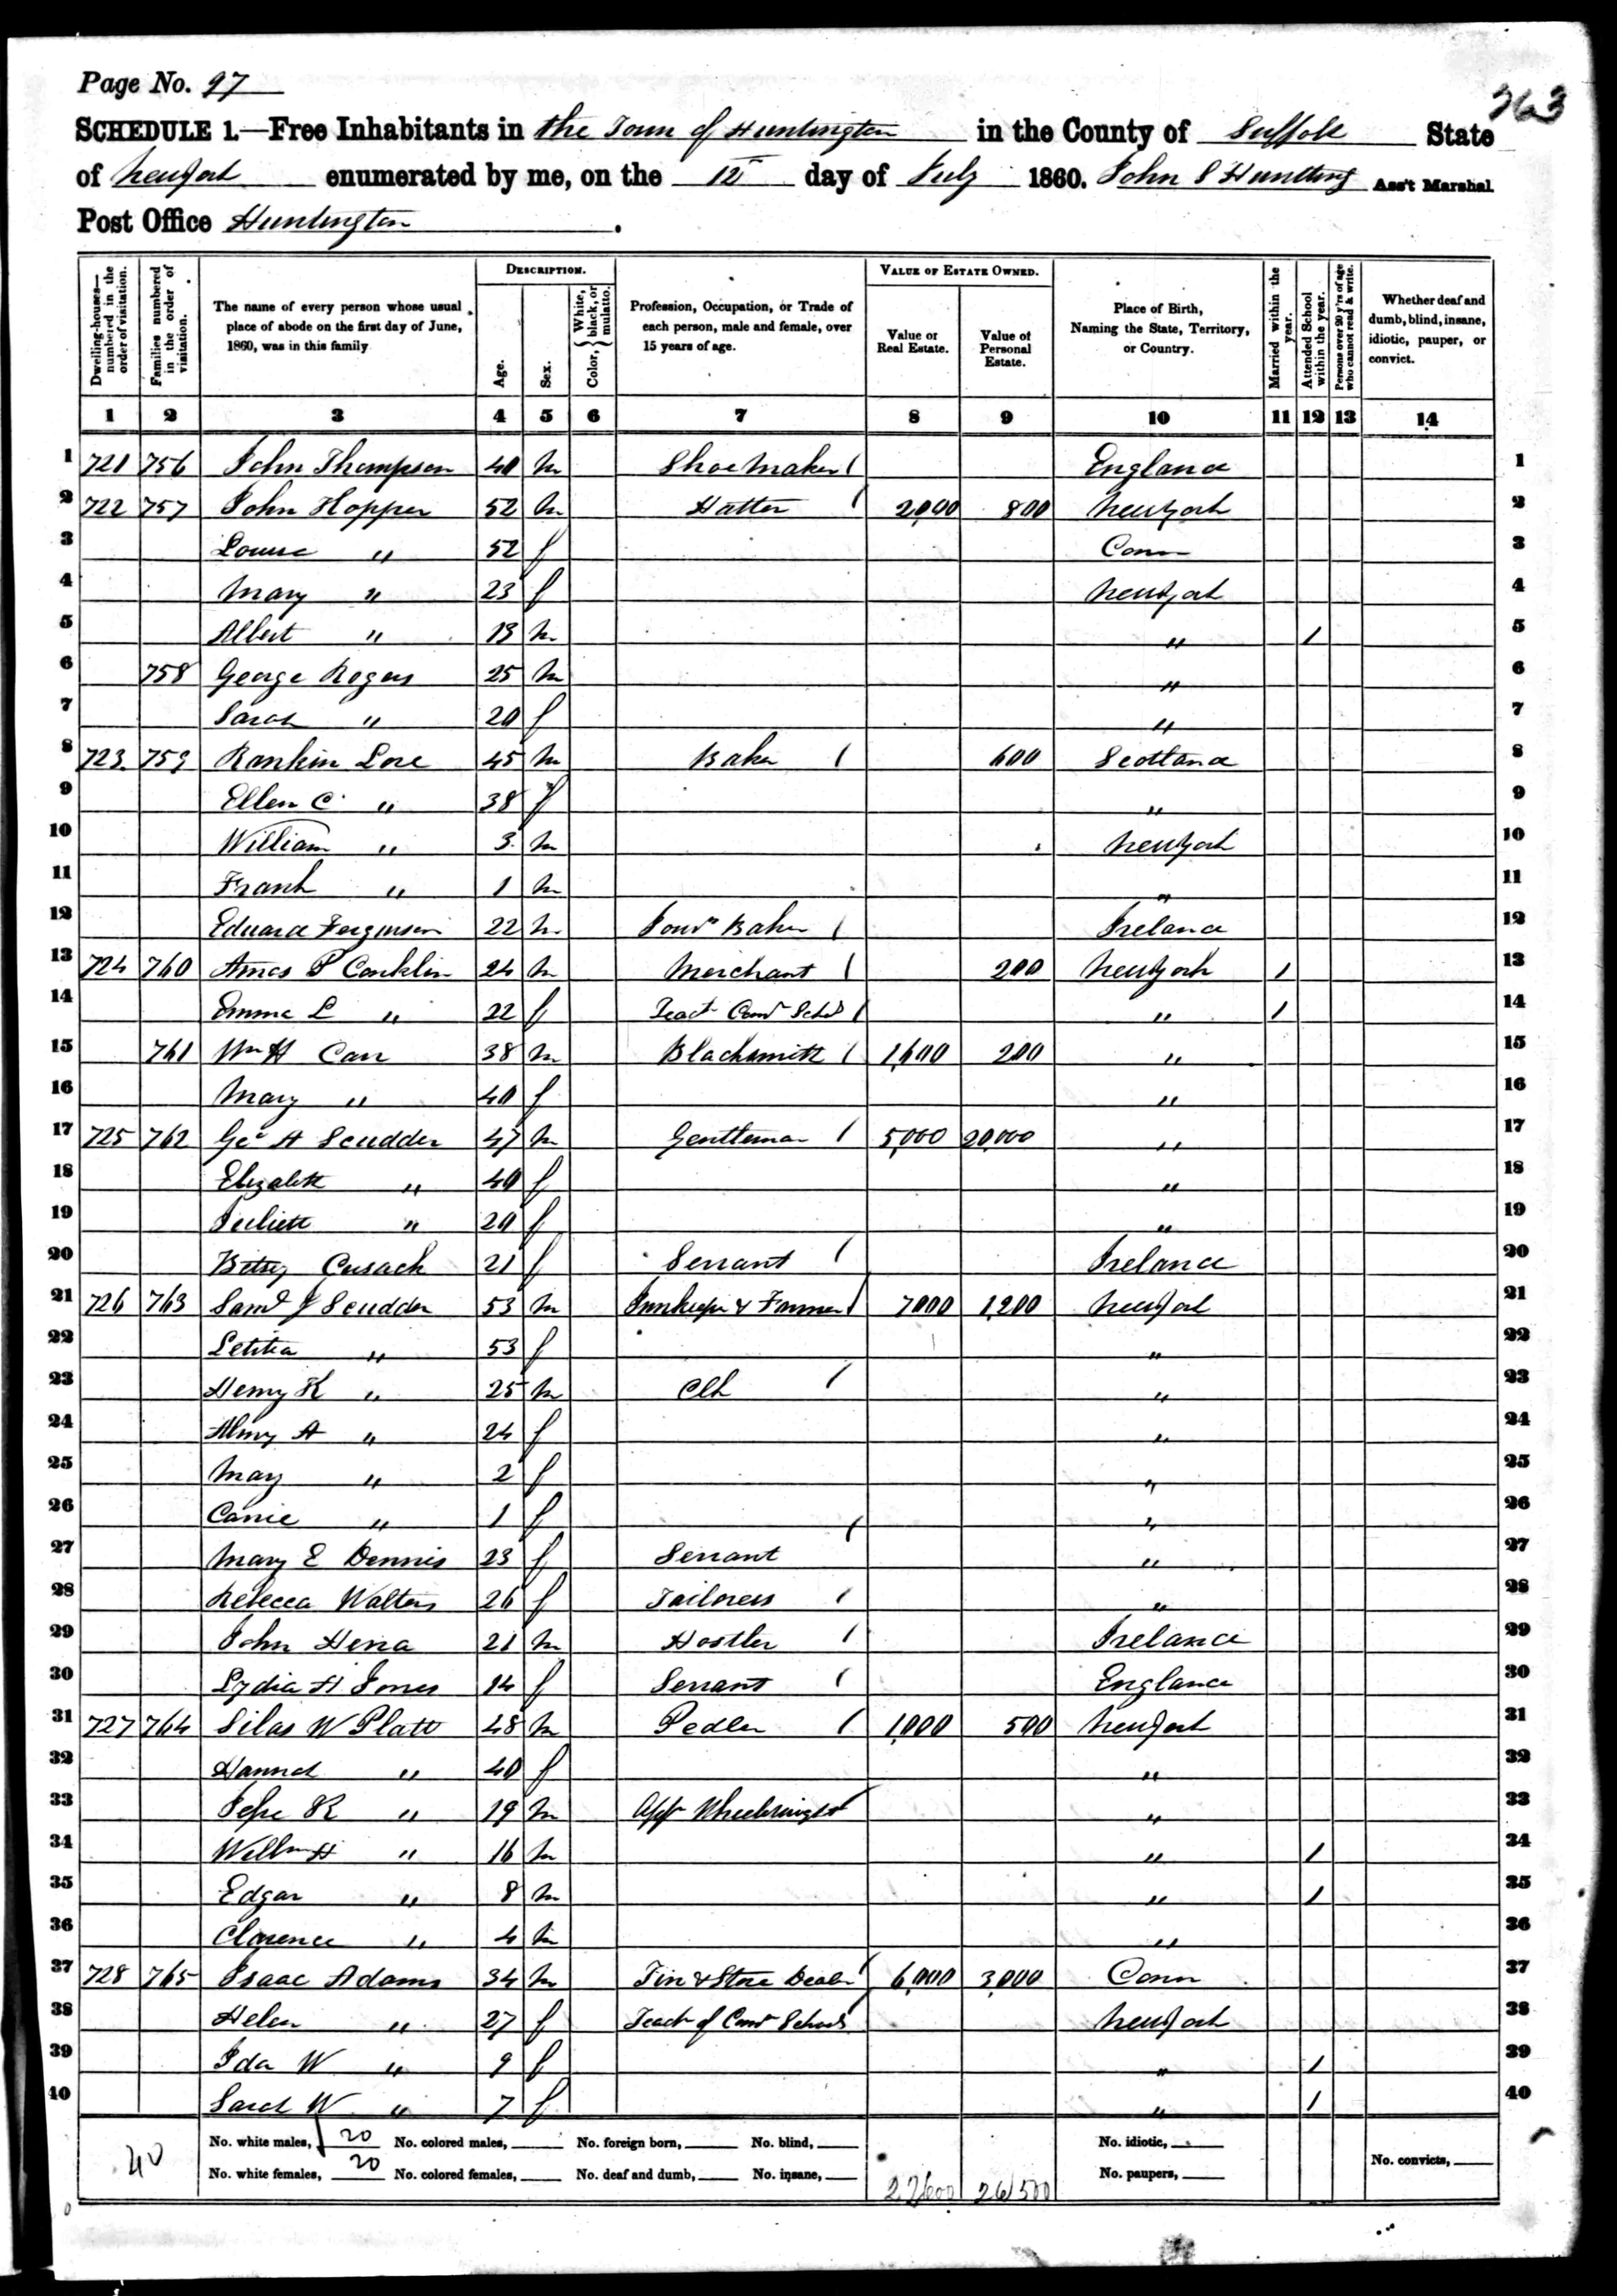 Page No. 97
263
SCHEDULE 1.—Free Inhabitants in the Town of Huntington in the County of Suffolk State
of New York enumerated by me, on the 12 day of July 1860. John S Huntting Ass't Marshal.
Post Office Huntington.
Dwelling-houses—numbered in the order of visitation.
Families numbered in the order of visitation.
The name of every person whose usual place of abode on the first day of June, 1860, was in this family.
DESCRIPTION.
Age.
Sex.
Color, {White, black, or mulatto.
Profession, Occupation, or Trade of each person, male and female, over 15 years of age.
VALUE OF ESTATE OWNED.
Value of Real Estate.
Value of Personal Estate.
Place of Birth, Naming the State, Territory, or Country.
Married within the year.
Attended School within the year.
Persons over 20 y'rs of age who cannot read & write.
Whether deaf and dumb, blind, insane, idiotic, pauper, or convict.
1 2 3 4 5 6 7 8 9 10 11 12 13 14
1 721 756 John Thompson 40 m Shoemaker / England 1
2 722 757 John Hopper 52 m Hatter / 2,000 800 New York 2
3 Louisa " 52 f Conn 3
4 Mary " 23 f New York 4
5 Albert " 13 m " / 5
6 758 George Rogers 25 m " 6
7 Sarah " 20 f " 7
8 723 759 Rankin Lore 45 m Baker / 600 Scotland 8
9 Ellen C " 38 f " 9
10 William " 3 m New York 10
11 Frank " 1 m " 11
12 Edward Ferguson 22 m Jour Baker / Ireland 12
13 724 760 Amos P Conklin 24 m Merchant / 200 New York / 13
14 Emma L " 22 f Teach Com Schol / " / 14
15 761 Wm H Carr 38 m Blacksmith / 1,600 200 " 15
16 Mary " 40 f " 16
17 725 762 Geo A Scudder 47 m Gentleman / 5,000 20,000 " 17
18 Elizabeth " 40 f " 18
19 Juliett " 20 f " 19
20 Betsy Cusack 21 f Servant / Ireland 20
21 726 763 Saml J Scudder 53 m Innkeeper & Farmer / 7000 1,200 New York 21
22 Letitia " 53 f " 22
23 Henry K " 25 m Clk / " 23
24 Almy A " 24 f " 24
25 May " 2 f " 25
26 Carrie " 1 f " 26
27 Mary E Dennis 23 f Servant / " 27
28 Rebecca Walters 26 f Tailoress / " 28
29 John Hena 21 m Hostler / Ireland 29
30 Lydia H Jones 14 f Servant / England 30
31 727 764 Silas W Platt 48 m Pedler / 1,000 500 New York 31
32 Hannah " 40 f " 32
33 Jesse R " 19 m App Wheelwright / " 33
34 Willm H " 16 m " / 34
35 Edgar " 8 m " / 35
36 Clarence " 4 m " 36
37 728 765 Isaac Adams 34 m Tin & Stove Dealer / 6,000 3,000 Conn 37
38 Helen " 27 f Teach of Com School / New York 38
39 Ida W " 9 f " / 39
40 Sarah W " 7 f " / 40
40
No. white males, 20 No. colored males, No. foreign born, No. blind, No. idiotic,
No. white females, 20 No. colored females, No. deaf and dumb, No. insane, 22600 26500 No. paupers, No. convicts,